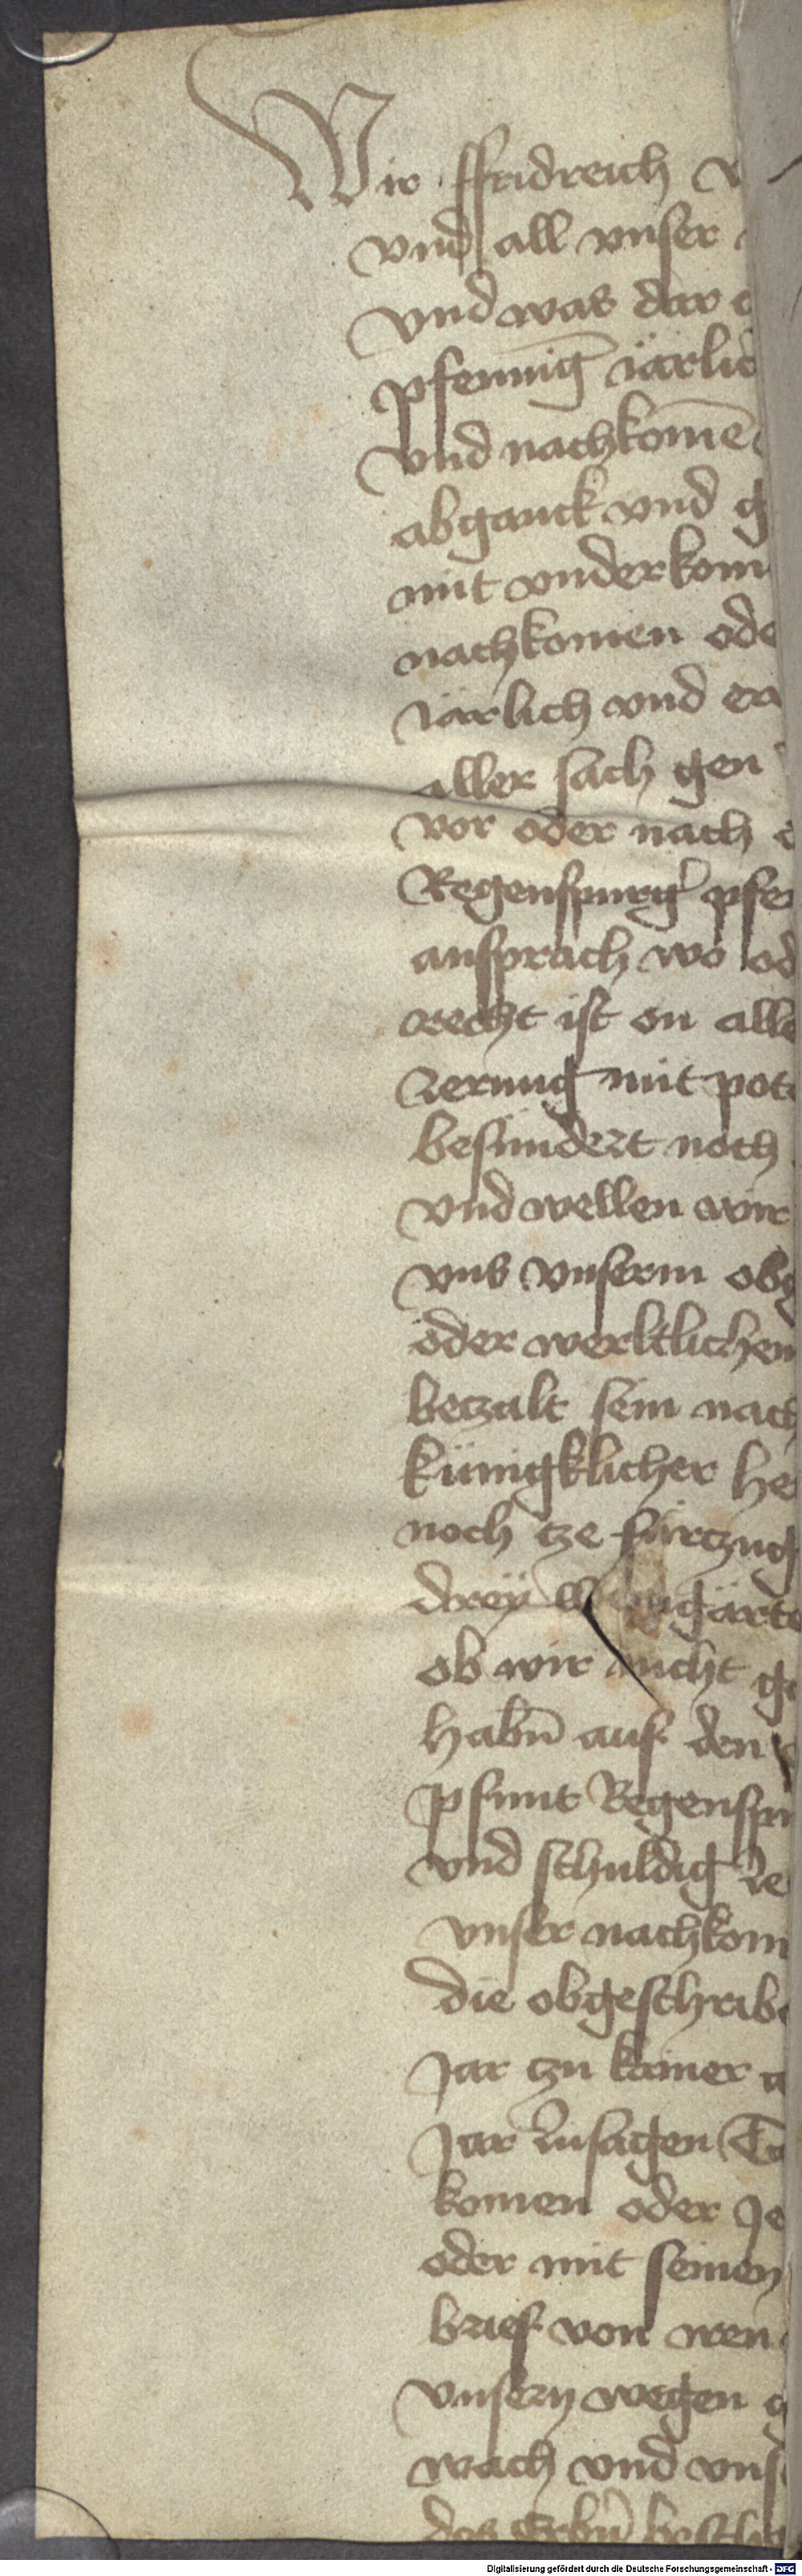 Wir ffridreich v
vnd all vnser
vnd was dar
pfennig järlic
vnd nachkomē
abganck vnd g
mit vnderkom
nachkomen ode
Järlich vnd er
aller sach gen
vor oder nach
Regenspurg pfe
ansprach wo od
recht ist on alle
zerung mit pot
besundert noch
vnd wellen wir
vns vnserm obg
oder werltlichen
beczalt sein nach
künigklicher he
noch cze fürczug
dreÿ weingärte
ob wir nicht ge
habn̄ auf den
pfunt Regenspu
vnd schuldig
vnser nachkom
die obgeschribe
Jar czu kainer
Jar zusagen
komen oder Je
oder mit seinen
brief von iren
vnsern wegen
wach vnd vns
des
Digitalisierung gefördert durch die Deutsche Forschungsgemeinschaft - DFG